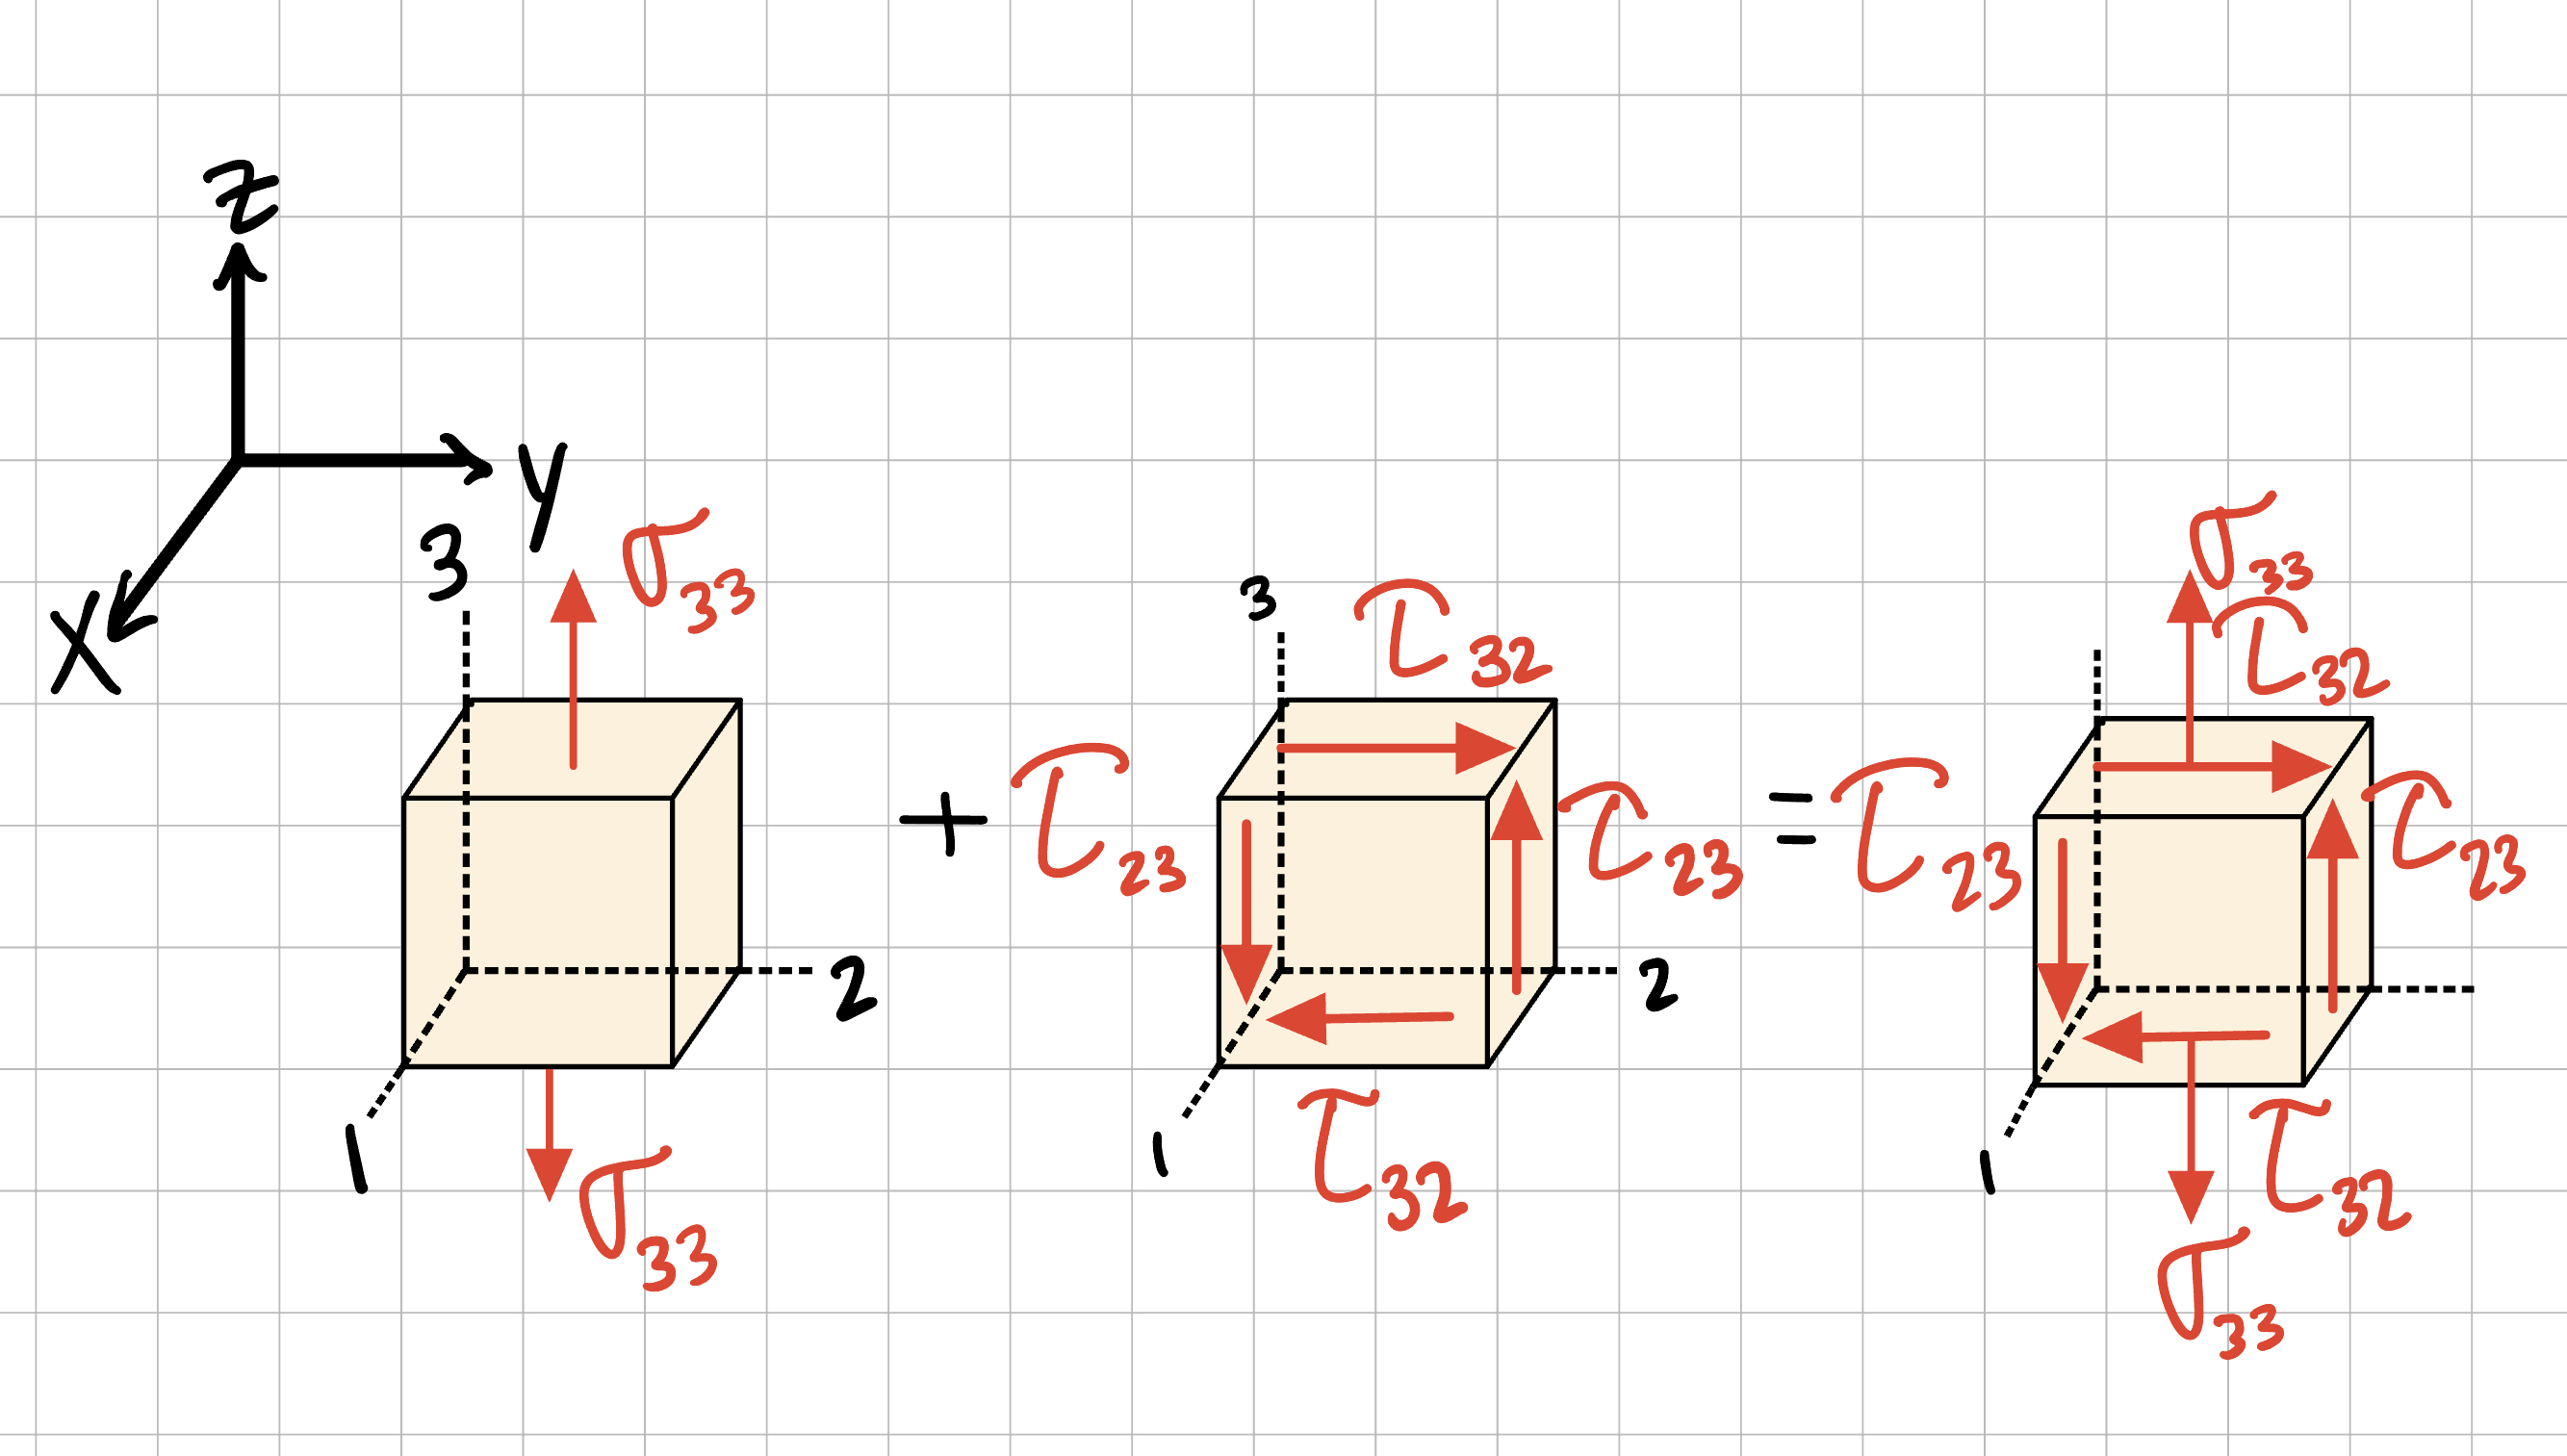 z
y
x
3
σ33
2
1
σ33
+
3
τ32
τ23
τ23
2
1
τ32
=
σ33
τ32
τ23
τ23
1
τ32
σ33